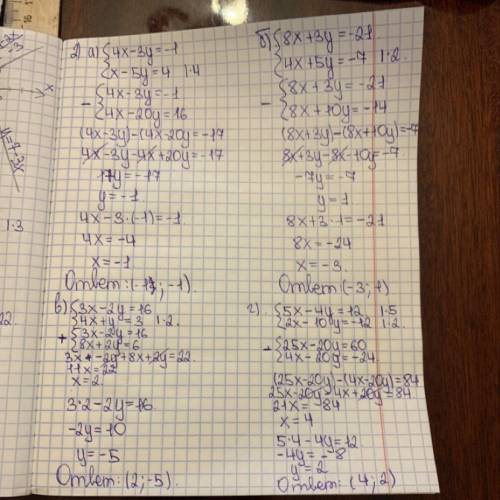 2. а) {4x-3y=-1
x-5y=4 |·4
- {4x-3y=-1
4x-20y=16
(4x-3y)-(4x-20y=-17
4x-3y-4x+20y=-17
17y=-17
y=-1.
4x-3·(-1)=-1.
4x=-4
x=-1
Ответ: (-1; -1).
б) {8x+3y=-21
4x+5y=-7 |·2.
- {8x+3y=-21
8x+10y=-14
(8x+3y)-(8x+10y)=-7
8x+3y-8x-10y=-7
-7y=-7
y=1
8x+3·1=-21
8x=-24
x=-3.
Ответ: (-3; 1)
в) {3x-2y=16
4x+y=3 |·2.
+ {3x-2y=16
8x+2y=6
3x-2y+8x+2y=22.
11x=22
x=2.
3·2-2y=16.
-2y=10
y=-5
Ответ: (2;-5).
г) {5x-4y=12 |·5
2x-10y=-12 |·2.
- {25x-20y=60
4x-20y=-24
(25x-20y)-(4x-20y)=84
25x-20y-4x+20y=84
21x=84
x=4
5·4-4y=12
-4y=-8
y=2
Ответ: (4; 2)
|·3
x